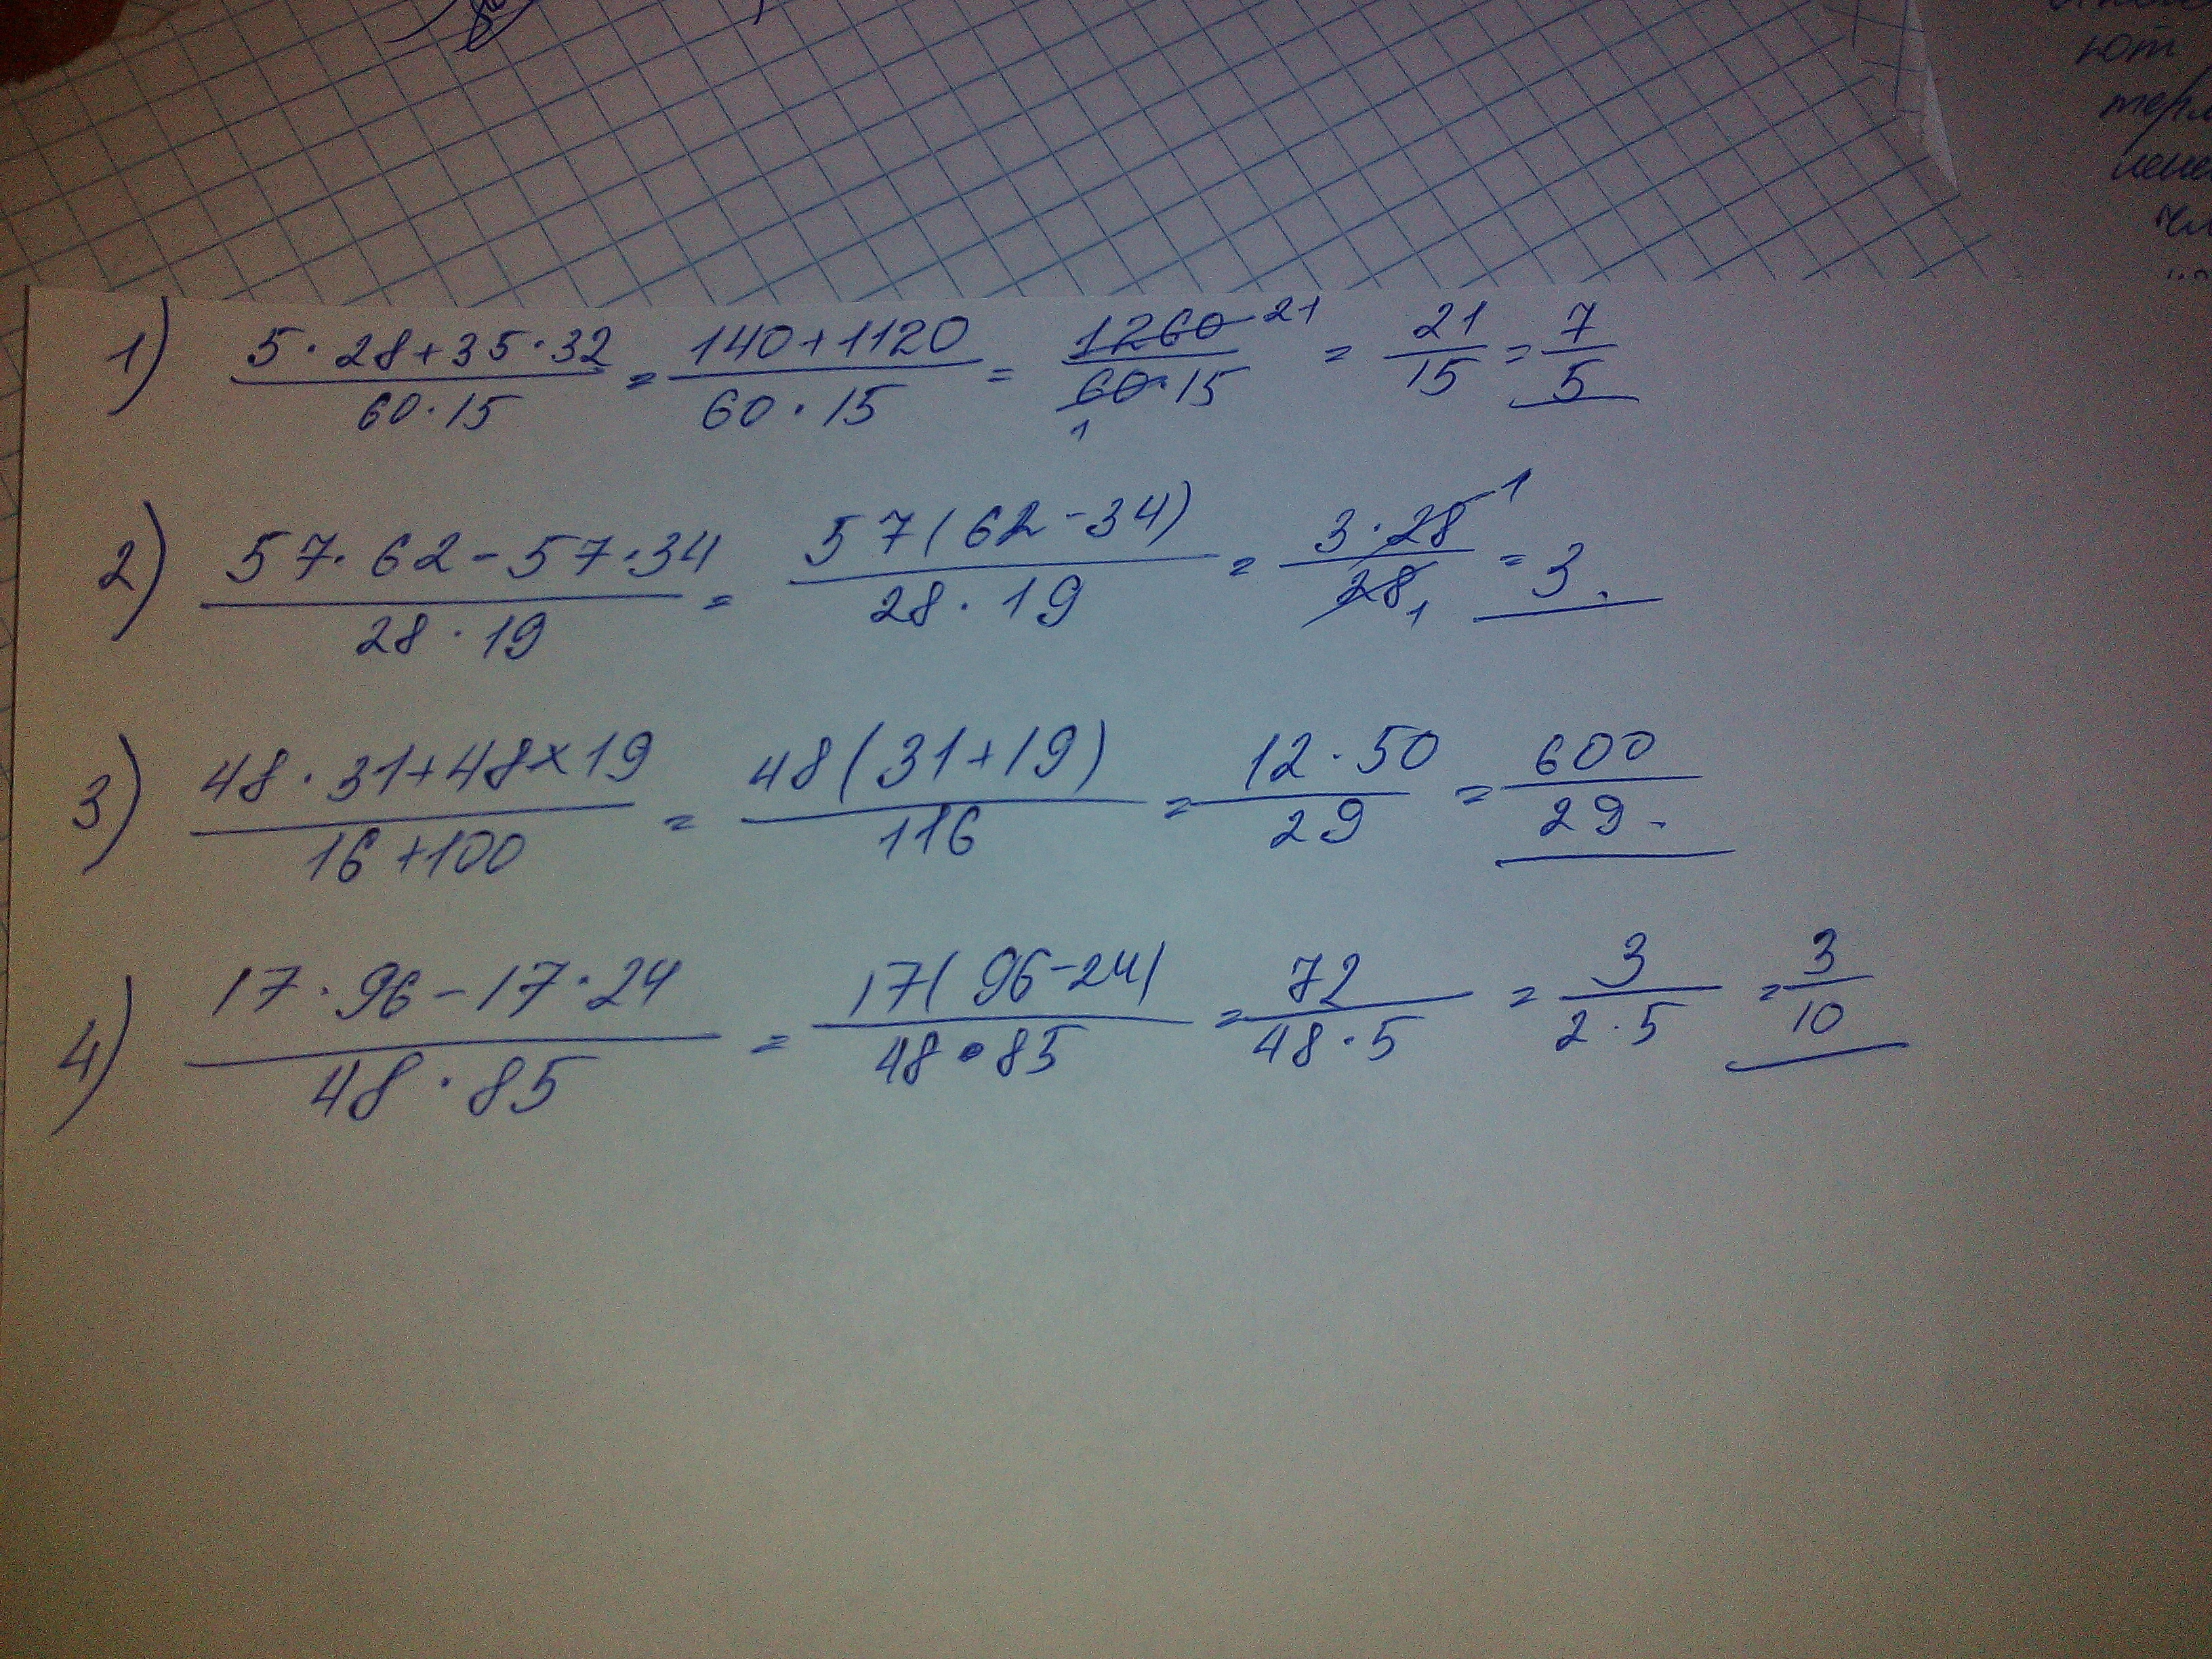 ют
1) (5·28+35·32)/(60·15) = (140+1120)/(60·15) = 1260 21/(60·15 1) = 21/15 = 7/5
2) (57·62-57·34)/(28·19) = 57(62-34)/(28·19) = 3·28 1/28 1 = 3.
3) (48·31+48×19)/(16+100) = 48(31+19)/116 = 12·50/29 = 600/29.
4) (17·96-17·24)/(48·85) = 17(96-24)/(48·85) = 72/(48·5) = 3/(2·5) = 3/10